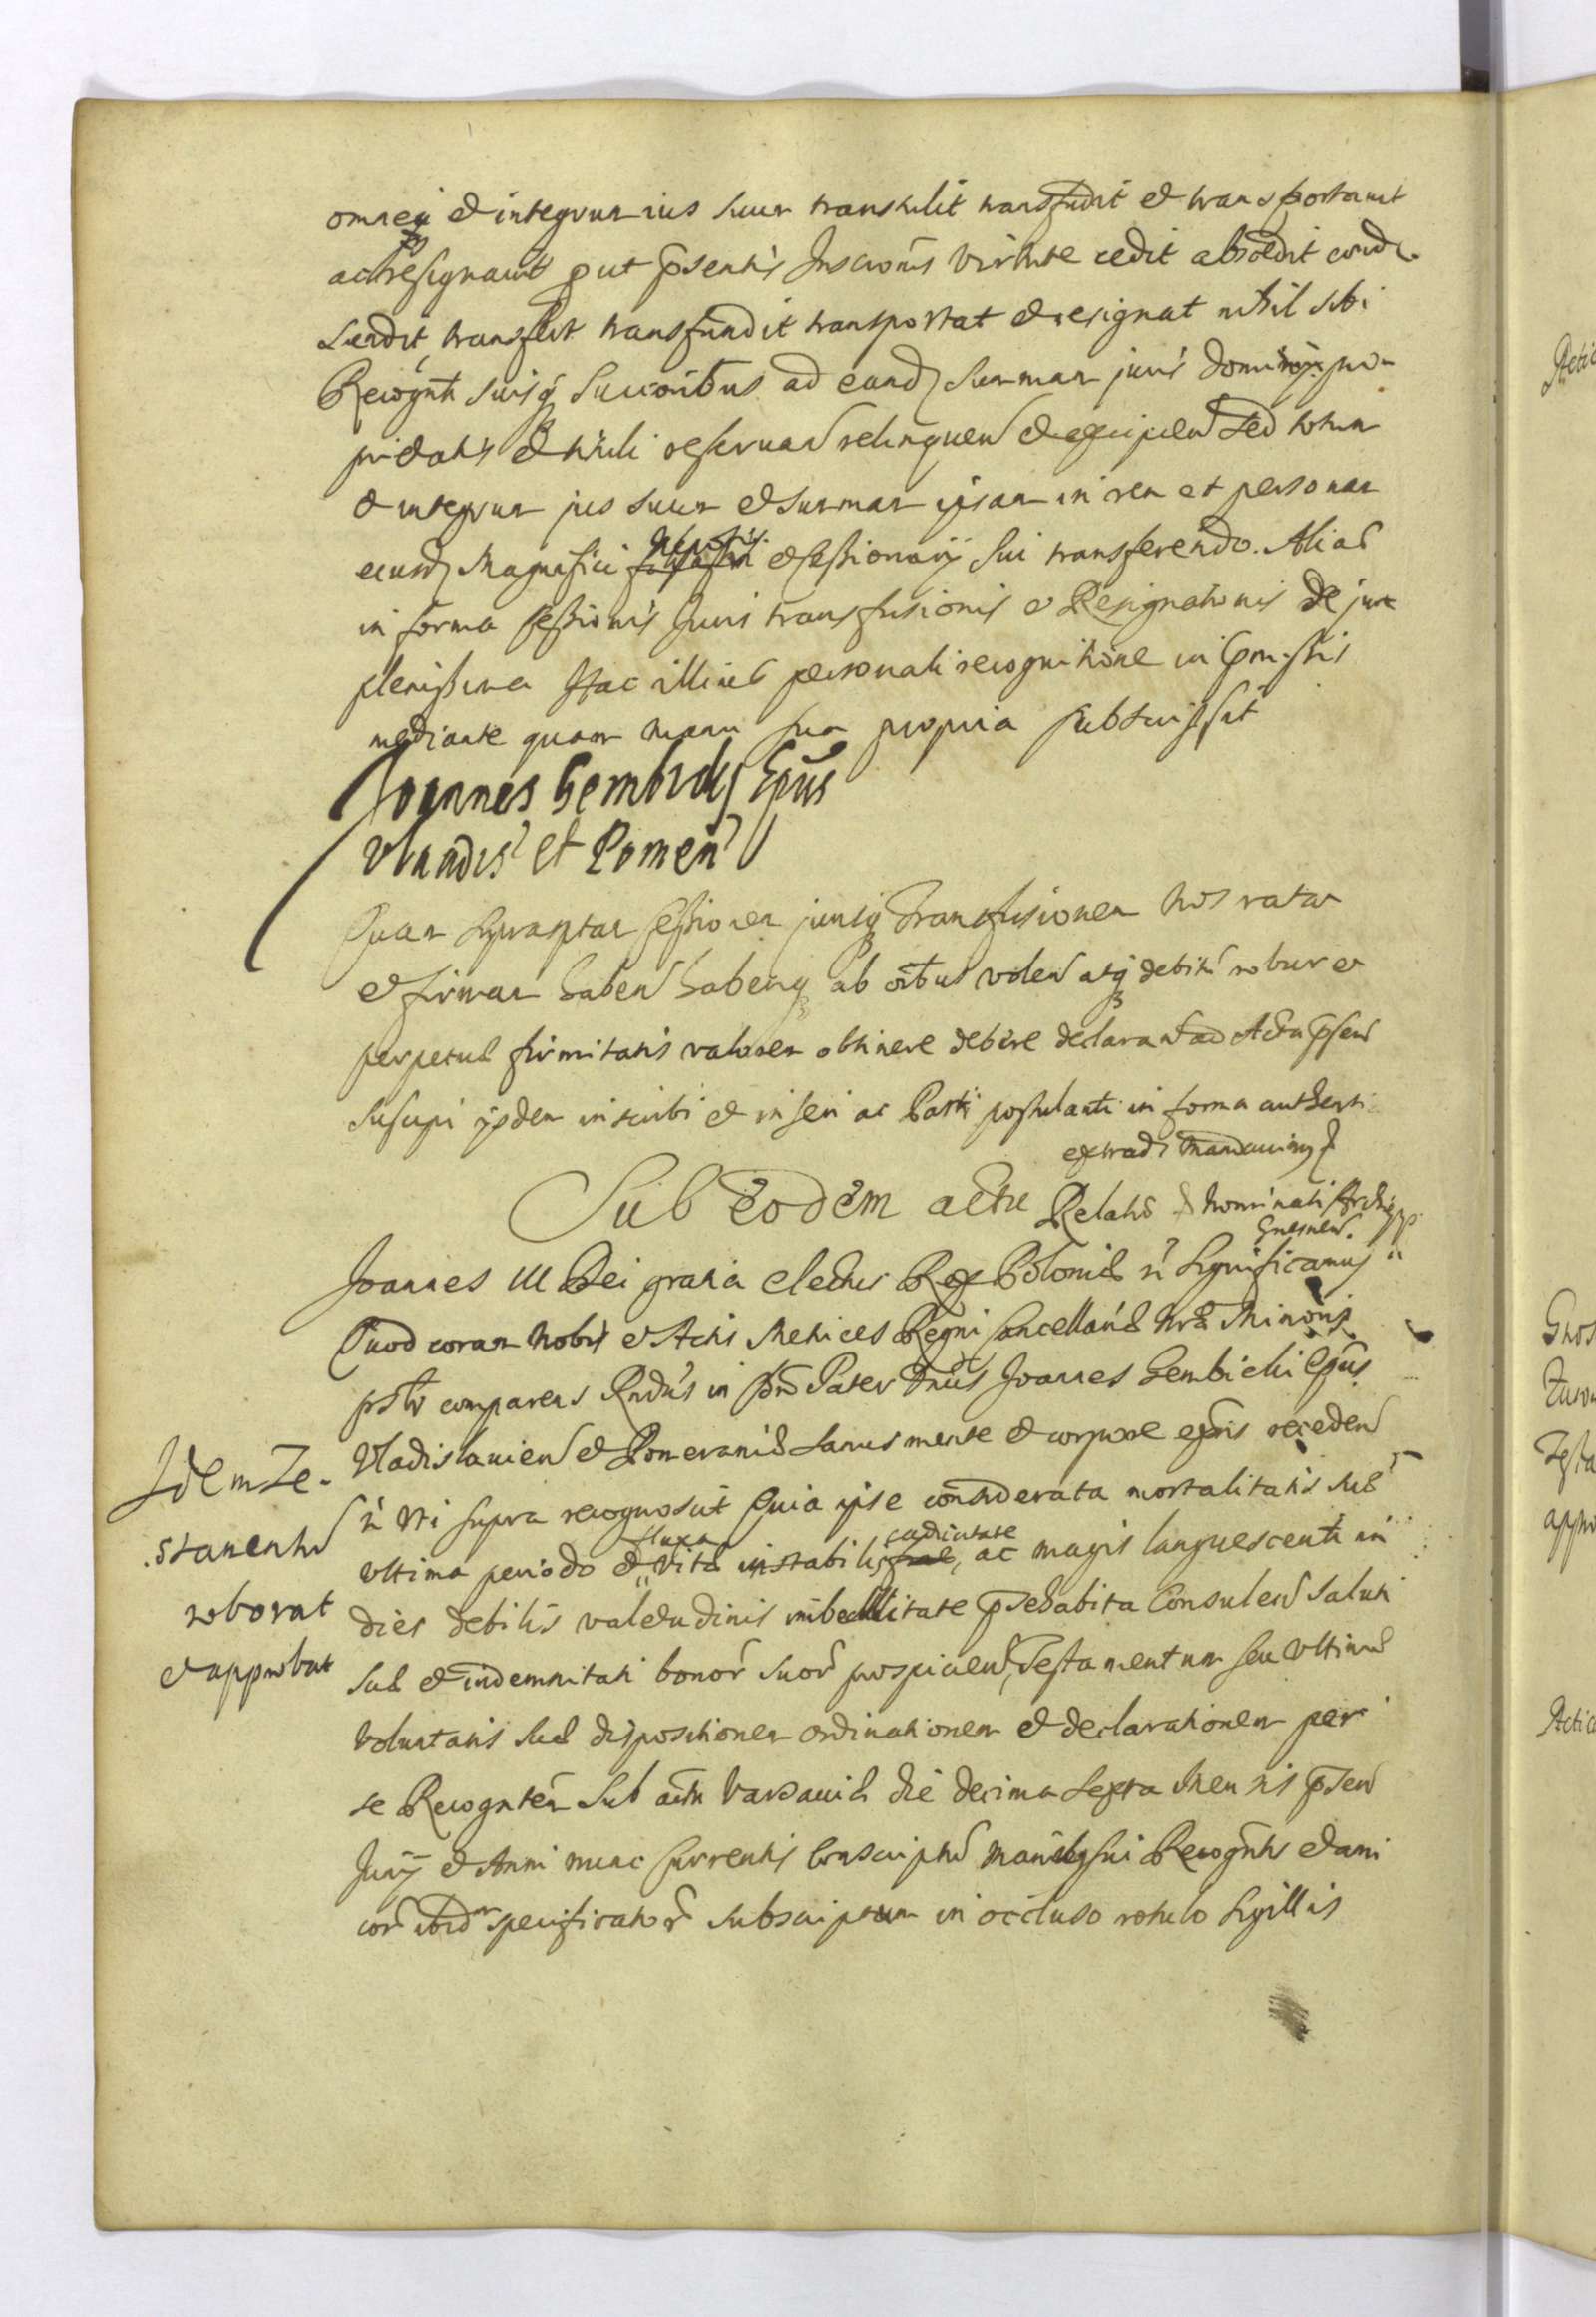 omnem et integrum ius suum transtulit transfudit et transportavit
ac resignavit put pnsentis Inscrions virtute cedit abscedit cond.
scendit, transfert transfundit transportat et resignat nihil sibi
Recognti suisq Succoribus ad eand summam juris dominii pro-
prietatis et tituli reservan relinquen et excipien sed totum
et integrum jus suum et summam ipsam in rem et personam
eiusd Magnifici Nepotis et Cessionarij sui transferendo. Alias
in forma Cessionis Juris transfusionis et Resignationis de jure
plenissima Hac illius personali recognitione in pmissis
mediante quam manu sua propria subscripsit
Joannes Gembicky Epus
Vladis et Pomera
Quam Suprascriptam Cessionem jurisq Transfusionem nos ratam
et firmam haben haberiq ab oibus volen atq debitu robur et
perpetuae firmitatis valorem obtinere debere declaran ad Acta psen
suscipi ijsdem inscribi et inseri ac Parti postulanti in forma authenti
extradi mandavimus
Sub eodem actu Relatio Nominati Archiepp
Gnesnen.
Joannes III Dei gratia electus Rex Poloniae Significamus
Quod coram Nobis et Actis Metrices Regni Cancellariae nrae Minoris
psltr comparens Rndus in Xto Pater Dnus Joannes Gembicki Epus
Vladislavien et Pomeraniae sanus mente et corpore exns receden
Idem Te-
uti supra recognovit Quia ipse considerata mortalitatis suae
stamentu
ultima periodo et fluxa vitae instabilis caducitate, ac magis languescenti in
roborat
dies debilis valetudinis imbecillitate praehabita Consulen saluti
et approbat
suae et indemnitati bonor suor prospicien, Testamentum seu Ultimae
Voluntatis suae dispositionem ordinationem et declarationem per
se Recogntem sub actu Varsaviae die decima sexta Mensis psen
Junij et Anni nunc currentis conscriptu manibusq sui Recogntis et ami
cor ibid specificator subscriptum in occluso rotulo sigillis